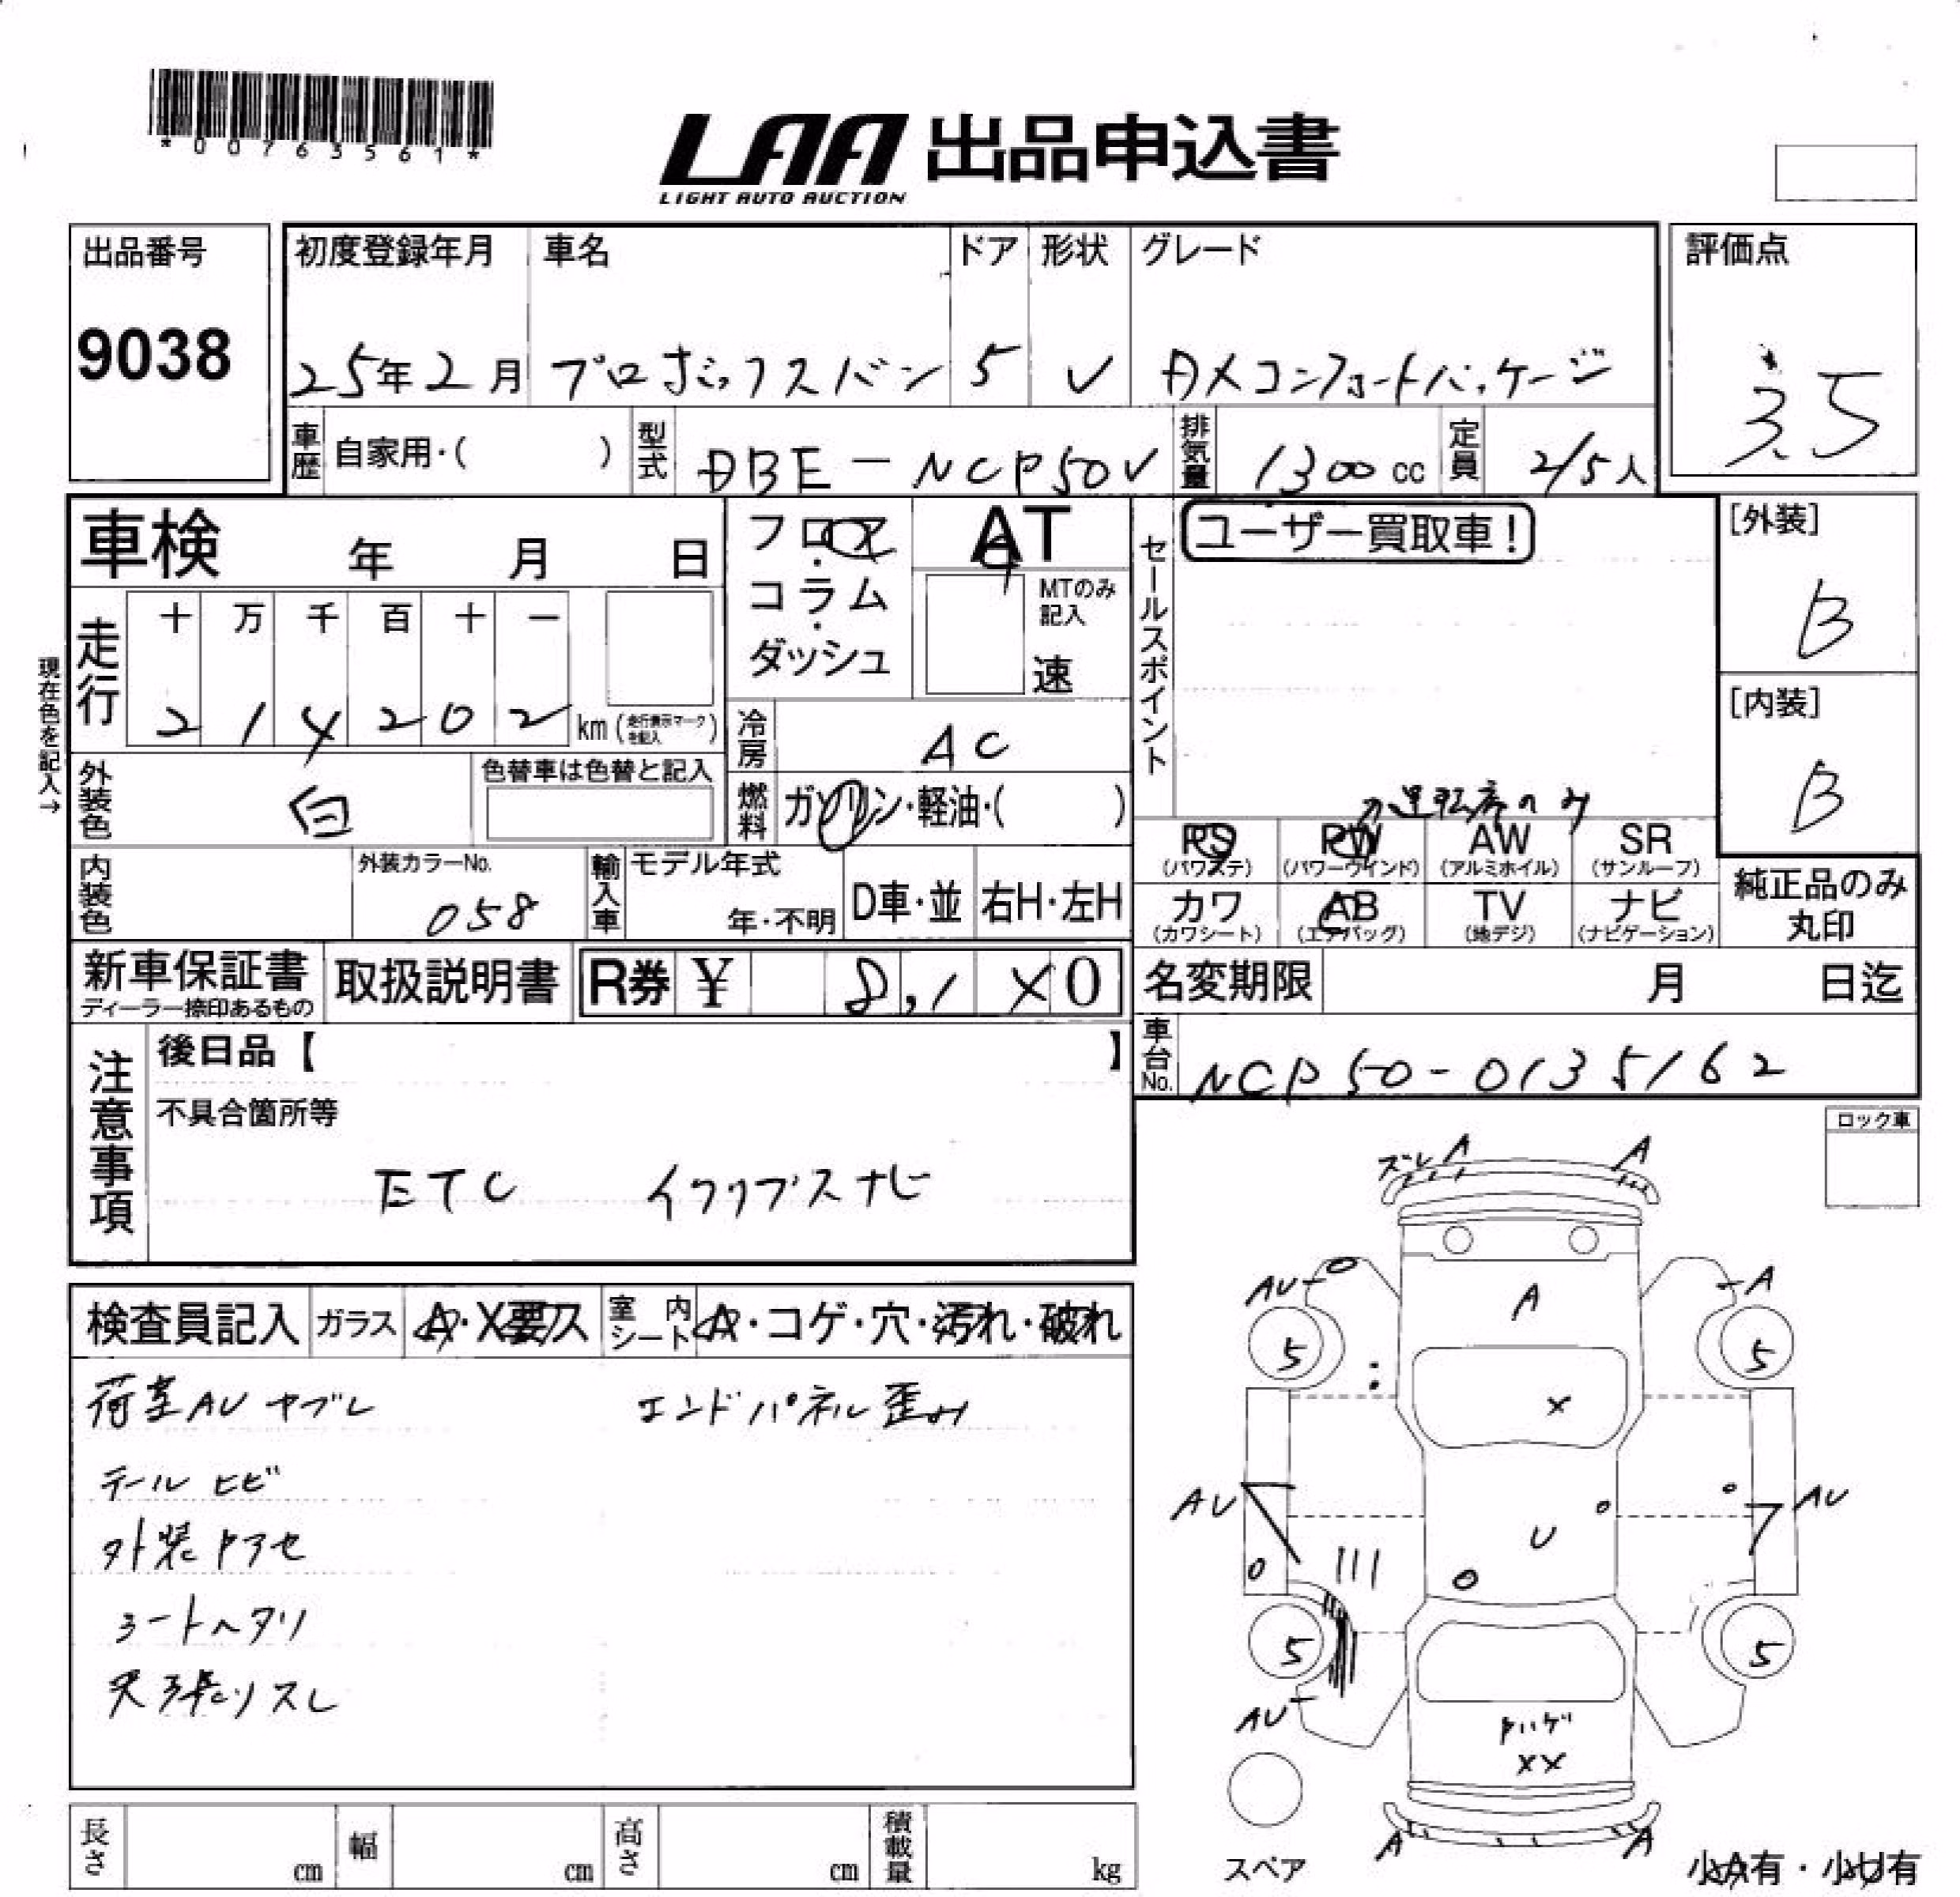 *00763561*
LAA 出品申込書
LIGHT AUTO AUCTION
出品番号
9038
初度登録年月
25年2月
車名
プロボックスバン
ドア
5
形状
V
グレード
DXコンフォートパッケージ
評価点
3.5
車歴 自家用・( )
型式 DBE-NCP50V
排気量 1300cc
定員 2/5人
車検 年 月 日
フロア・コラム・ダッシュ
AT
MTのみ記入
速
セールスポイント
ユーザー買取車!
[外装]
B
現在色を記入→
走行
十 万 千 百 十 一
2 1 4 2 0 2 km (走行表示マークを記入)
[内装]
B
冷房 AC
外装色 白
色替車は色替と記入
燃料 ガソリン・軽油・( )
運転席のみ
PS (パワステ)
PW (パワーウインド)
AW (アルミホイル)
SR (サンルーフ)
カワ (カワシート)
AB (エアバッグ)
TV (地デジ)
ナビ (ナビゲーション)
純正品のみ丸印
内装色
外装カラーNo.
058
輸入車
モデル年式
年・不明
D車・並
右H・左H
新車保証書
ディーラー捺印あるもの
取扱説明書
R券 ¥ 8,1×0
名変期限 月 日迄
車台No. NCP50-0135162
注意事項
後日品【 】
不具合箇所等
ETC イクリプスナビ
ロック車
検査員記入
ガラス A・X要ス
室内シート A・コゲ・穴・汚れ・破れ
荷室AU ヤブレ
エンドパネル歪み
テール ヒビ
外装ヤアセ
シートヘタリ
天張りスレ
ズレ A
A
AU
A
A
5
5
X
AU
AU
U
5
5
AU
ハゲ
XX
A
A
スペア
小A有・小U有
長さ cm
幅 cm
高さ cm
積載量 kg